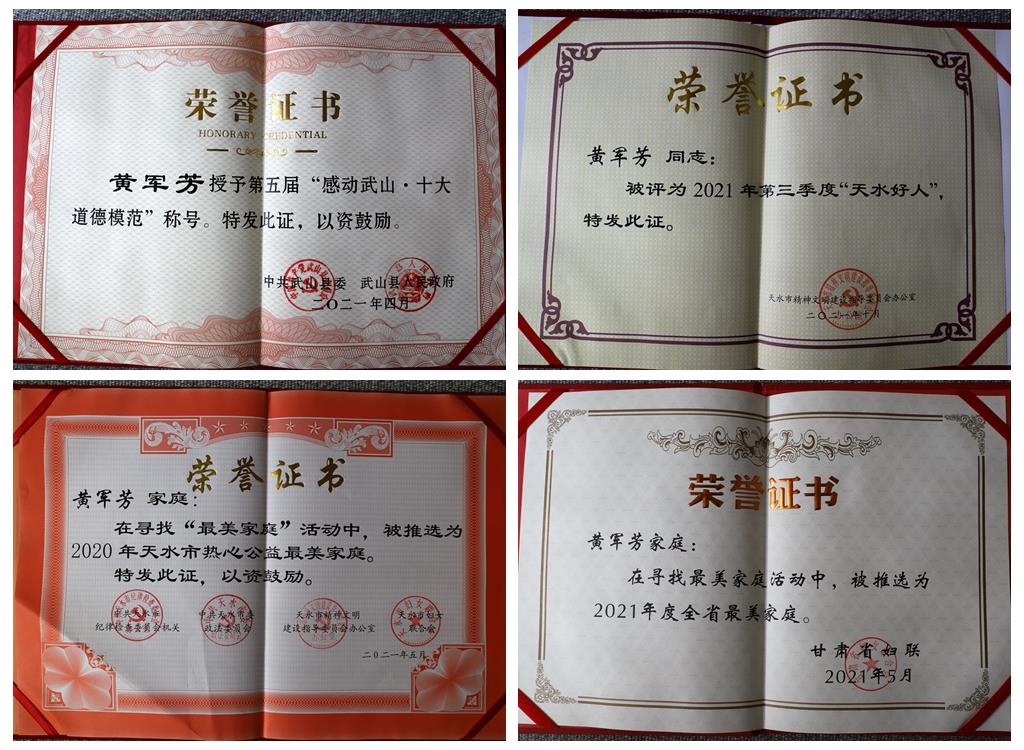 荣誉证书
HONORARY CREDENTIAL
黄军芳授予第五届“感动武山·十大
道德模范”称号。特发此证，以资鼓励。
中共武山县委 武山县人民政府
二〇二一年四月
荣誉证书
黄军芳 同志：
被评为 2021 年第三季度“天水好人”，
特发此证。
天水市精神文明建设指导委员会办公室
二〇二一年十月
荣誉证书
黄军芳 家庭：
在寻找“最美家庭”活动中，被推选为
2020 年天水市热心公益最美家庭。
特发此证，以资鼓励。
中共天水市
纪律检查委员会机关
中共天水市委
政法委员会
天水市精神文明
建设指导委员会办公室
天水市妇女
联合会
二〇二一年五月
荣誉证书
黄军芳家庭：
在寻找最美家庭活动中，被推选为
2021年度全省最美家庭。
甘肃省妇联
2021年5月